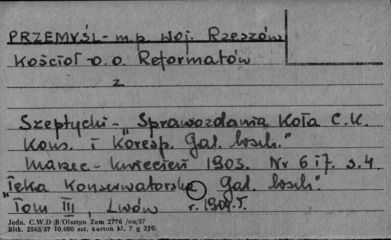 PRZEMYŚL - m.p. woj. Rzeszów
Kościół o.o. Reformatów
z
Szeptycki - Sprawozdania Koła C.K.
Kons. i Koresp. Gal. wsch."
Marzec - kwiecień 1903. Nr 6 i 7. s. 4.
"Teka Konserwatorska Gal. wsch."
Tom III, Lwów r. 1904.
Jedn. C.W.D B/Olsztyn Zam 2776
10.000 szt. karton kl. 7 g 270.